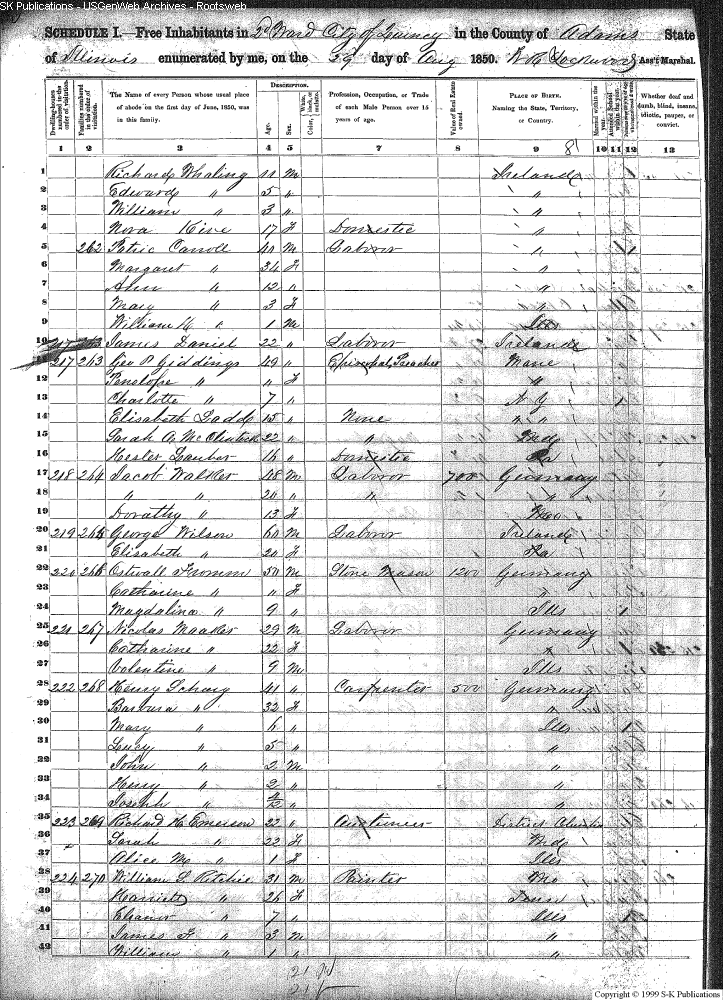 SK Publications - USGenWeb Archives - Rootsweb
SCHEDULE I.—Free Inhabitants in 2d Ward City of Quincy in the County of Adams State
of Illinois enumerated by me, on the 29 day of Aug 1850. Ass't Marshal.
Dwelling-houses numbered in the order of visitation.
Families numbered in the order of visitation.
The Name of every Person whose usual place of abode on the first day of June, 1850, was in this family.
DESCRIPTION.
Age.
Sex.
Color, White, black, or mulatto.
Profession, Occupation, or Trade of each Male Person over 15 years of age.
Value of Real Estate owned.
PLACE OF BIRTH. Naming the State, Territory, or Country.
Married within the year.
Attended School within the year.
Whether deaf and dumb, blind, insane, idiotic, pauper, or convict.
1 2 3 4 5 6 7 8 9 10 11 12 13
1 Richard Whaling 11 M Ireland
2 Edward 5 " "
3 William " 3 " "
4 Nora 17 F Domestic "
5 262 Patric Carroll 40 M Labor "
6 Margaret " 34 F "
7 Ann " 12 " "
8 Mary " 3 F "
9 William H " 1 M Ills
10 James Daniel 22 " Labor Ireland
11 217 263 Geo P Giddings 49 " Episcopal Preacher Mane
12 Penelope " " F "
13 Charlotte " 7 " N Y 1
14 Elisabeth Ladd 15 " None " "
15 Sarah A McClintick 22 " "
16 Hester 16 " Domestic Pa
17 218 264 Jacob Walker 48 M Labor 700 Germany
18 " " 20 " " "
19 Dorathy " 13 F
20 219 265 George Wilson 60 M Labor Ireland
21 Elisabeth " 20 F Pa
22 220 266 Fromm 50 M Stone Mason 1200 Germany
23 Catharine " " F "
24 Magdalina " 9 " Ills 1
25 221 267 Nicolas Maaker 29 M Labor Germany
26 Catharine " 22 F "
27 Valentine " 9 M Ills
28 222 268 Henry Scharg 41 " Carpenter 500 Germany
29 Barbara " 32 F "
30 Mary " 6 " Ills 1
31 Lucy " 5 " "
32 John " 2 M "
33 Henry " 2 " "
34 Joseph " "
35 223 269 Richard H Emerson 22 " District Columbia
36 Sarah " 22 F Md
37 Alice M " 1 F Ills
38 224 270 William S Ritchie 31 M Painter Mo
39 Harriett " 26 F Tenn
40 Eleanor " 7 " Ills 1
41 James F " 3 M "
42 William " 1 " "
21 M
21 F
Copyright © 1999 S-K Publications